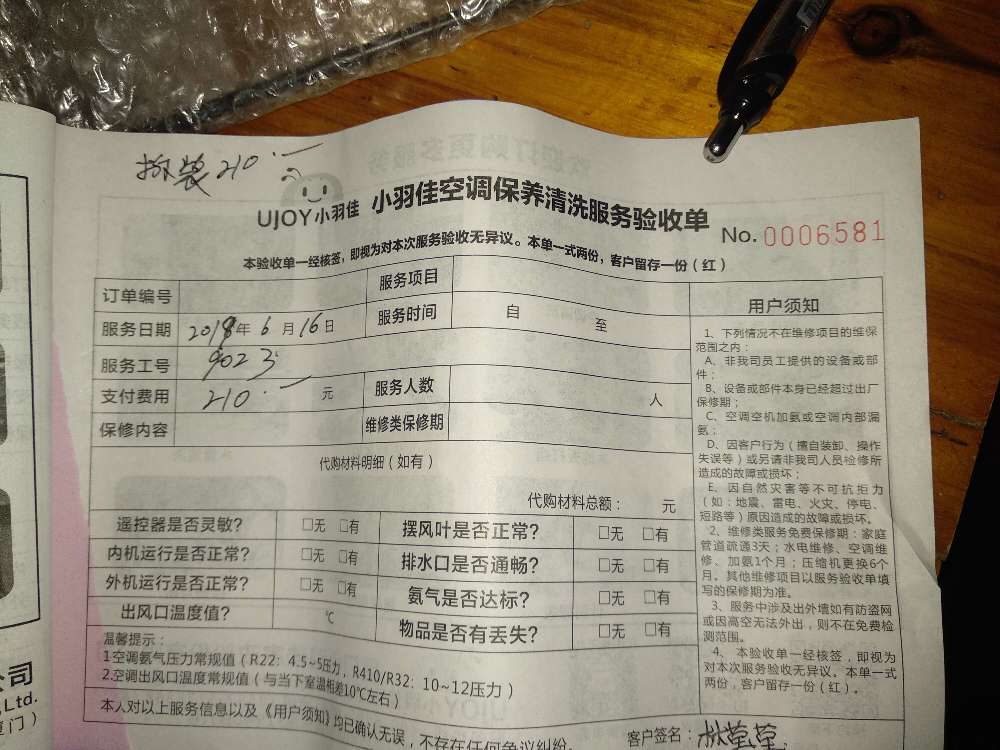 拆装210.
UJOY小羽佳 小羽佳空调保养清洗服务验收单
No. 0006581
本验收单一经核签，即视为对本次服务验收无异议。本单一式两份，客户留存一份（红）
订单编号 服务项目
服务日期 2018年6月16日 服务时间 自 至
服务工号 9023
支付费用 210. 元 服务人数 人
保修内容 维修类保修期
代购材料明细（如有）
代购材料总额： 元
遥控器是否灵敏？ □无 □有 摆风叶是否正常？ □无 □有
内机运行是否正常？ □无 □有 排水口是否通畅？ □无 □有
外机运行是否正常？ □无 □有 氨气是否达标？ □无 □有
出风口温度值？ ℃ 物品是否有丢失？ □无 □有
温馨提示：
1.空调氨气压力常规值（R22：4.5~5压力，R410/R32：10~12压力）
2.空调出风口温度常规值（与当下室温相差10℃左右）
本人对以上服务信息以及《用户须知》均已确认无误，不存在任何争议纠纷。
客户签名：
用户须知
1、下列情况不在维修项目的维保
范围之内：
A、非我司员工提供的设备或部
件；
B、设备或部件本身已经超过出厂
保修期；
C、空调空机加氨或空调内部漏
氨；
D、因客户行为（擅自装卸、操作
失误等）或另请非我司人员检修所
造成的故障或损坏；
E、因自然灾害等不可抗拒力
（如：地震、雷电、火灾、停电、
短路等）原因造成的故障或损坏。
2、维修类服务免费保修期：家庭
管道疏通3天；水电维修、空调维
修、加氨1个月；压缩机更换6个
月。其他维修项目以服务验收单填
写的保修期为准。
3、服务中涉及出外墙如有防盗网
或因高空无法外出，则不在免费检
测范围。
4、本验收单一经核签，即视为
对本次服务验收无异议。本单一式
两份，客户留存一份（红）。
公司
Ltd.
厦门）